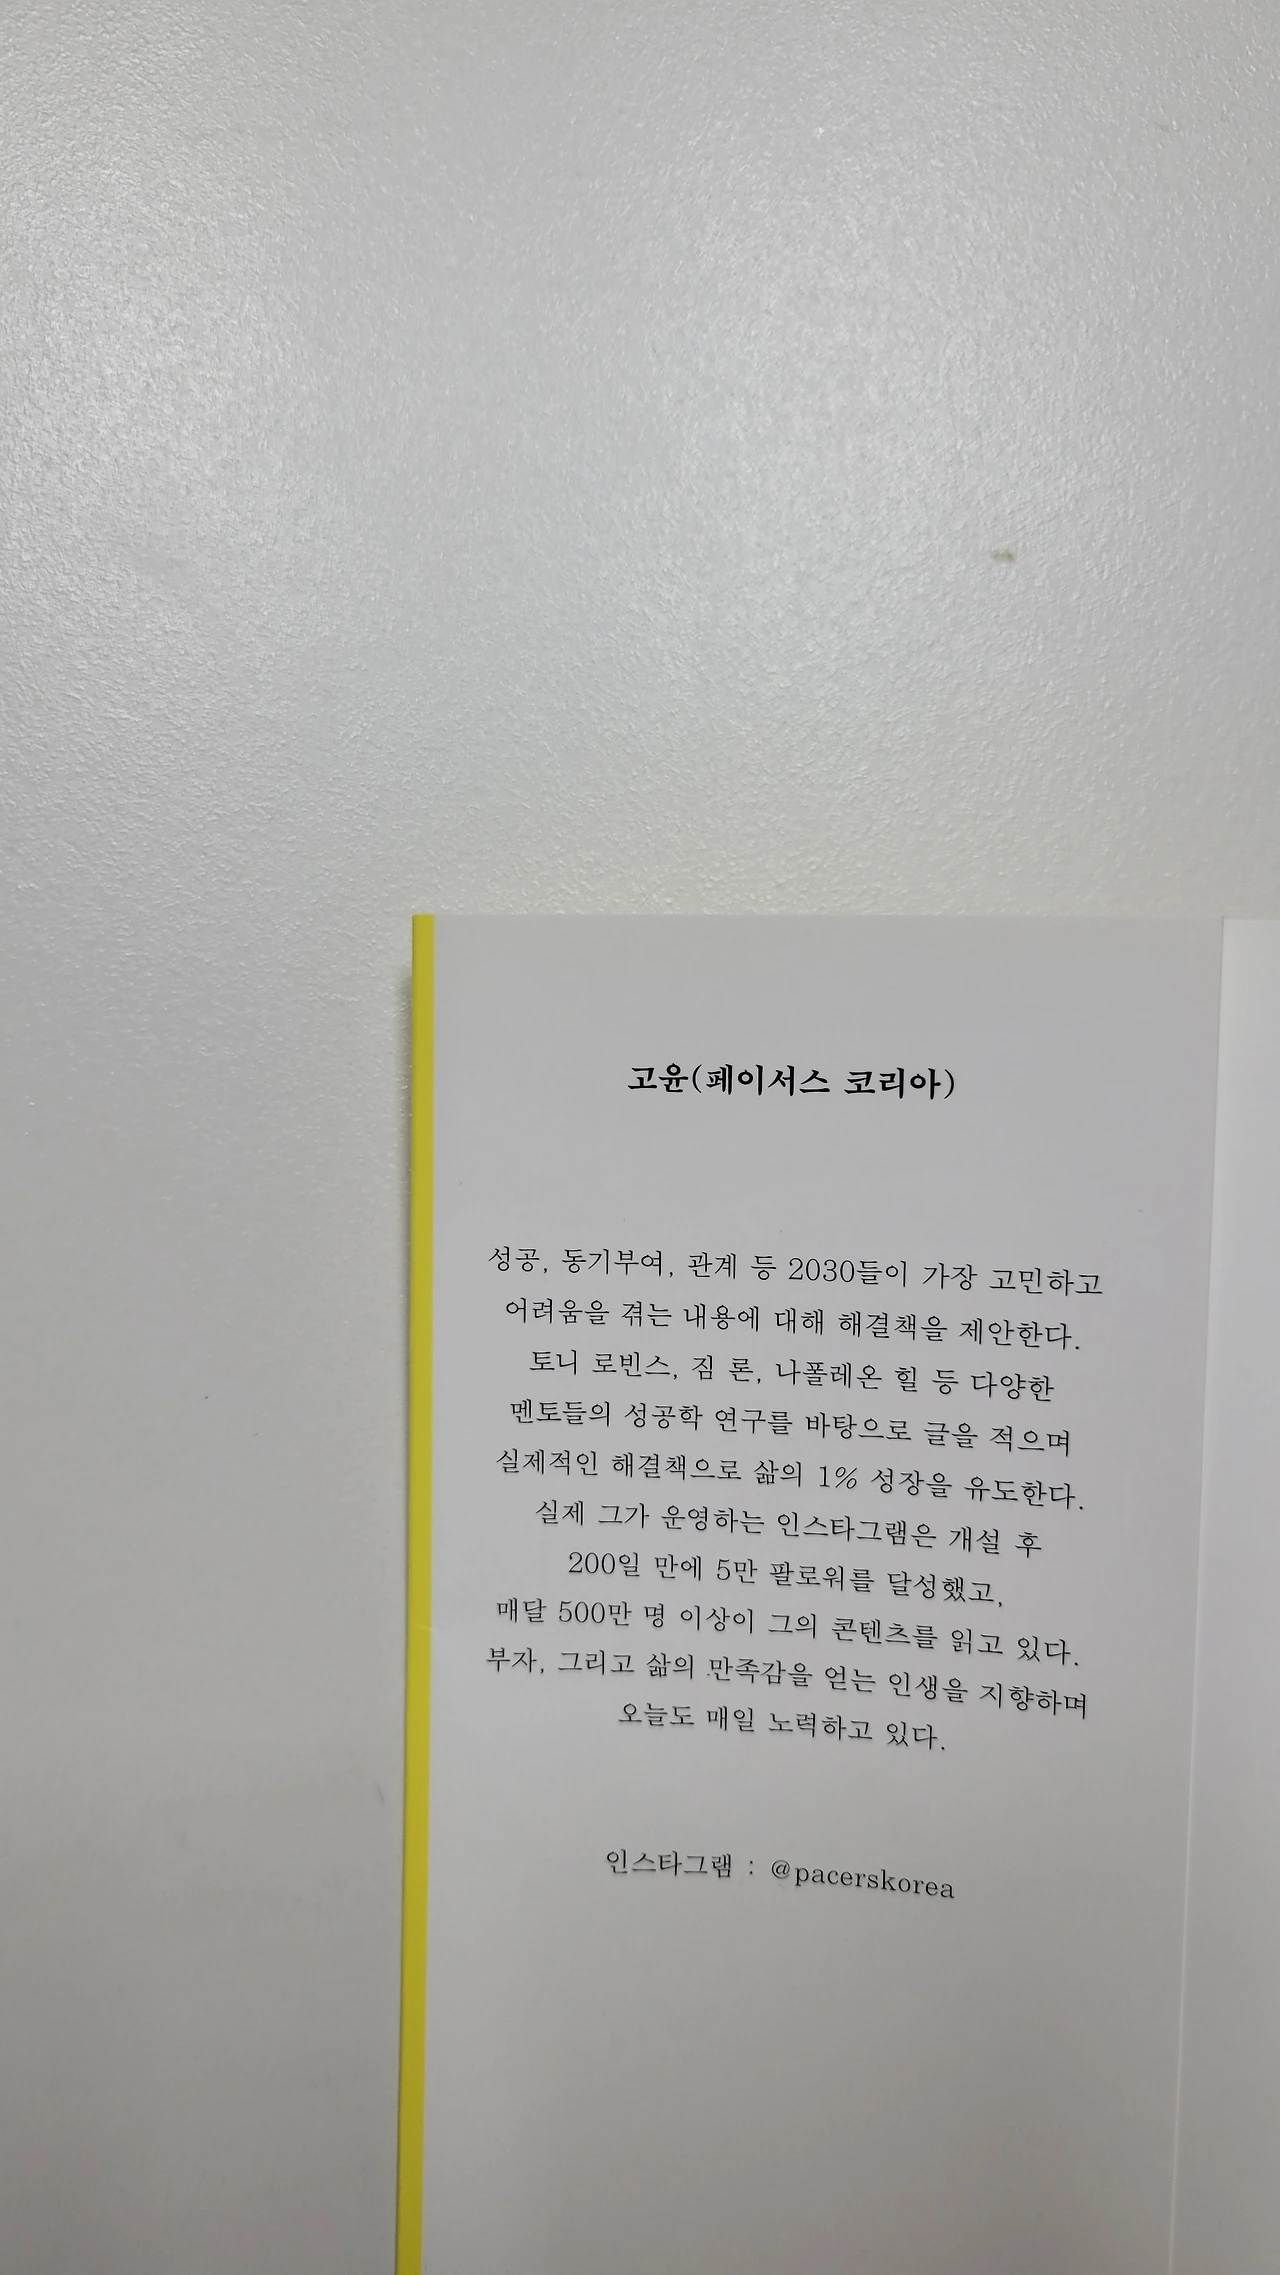 고윤(페이서스 코리아)
성공, 동기부여, 관계 등 2030들이 가장 고민하고
어려움을 겪는 내용에 대해 해결책을 제안한다.
토니 로빈스, 짐 론, 나폴레온 힐 등 다양한
멘토들의 성공학 연구를 바탕으로 글을 적으며
실제적인 해결책으로 삶의 1% 성장을 유도한다.
실제 그가 운영하는 인스타그램은 개설 후
200일 만에 5만 팔로워를 달성했고,
매달 500만 명 이상이 그의 콘텐츠를 읽고 있다.
부자, 그리고 삶의 만족감을 얻는 인생을 지향하며
오늘도 매일 노력하고 있다.
인스타그램 : @pacerskorea